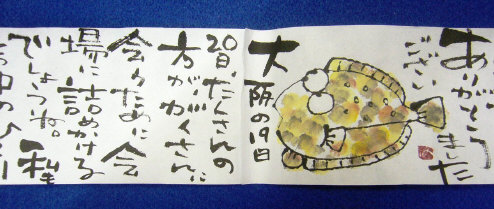 ありがとう
ござい
ました
大阪の19日
20日、たくさんの
方が、わくさんに
会うために会
場に詰めかける
でしょうね。私も